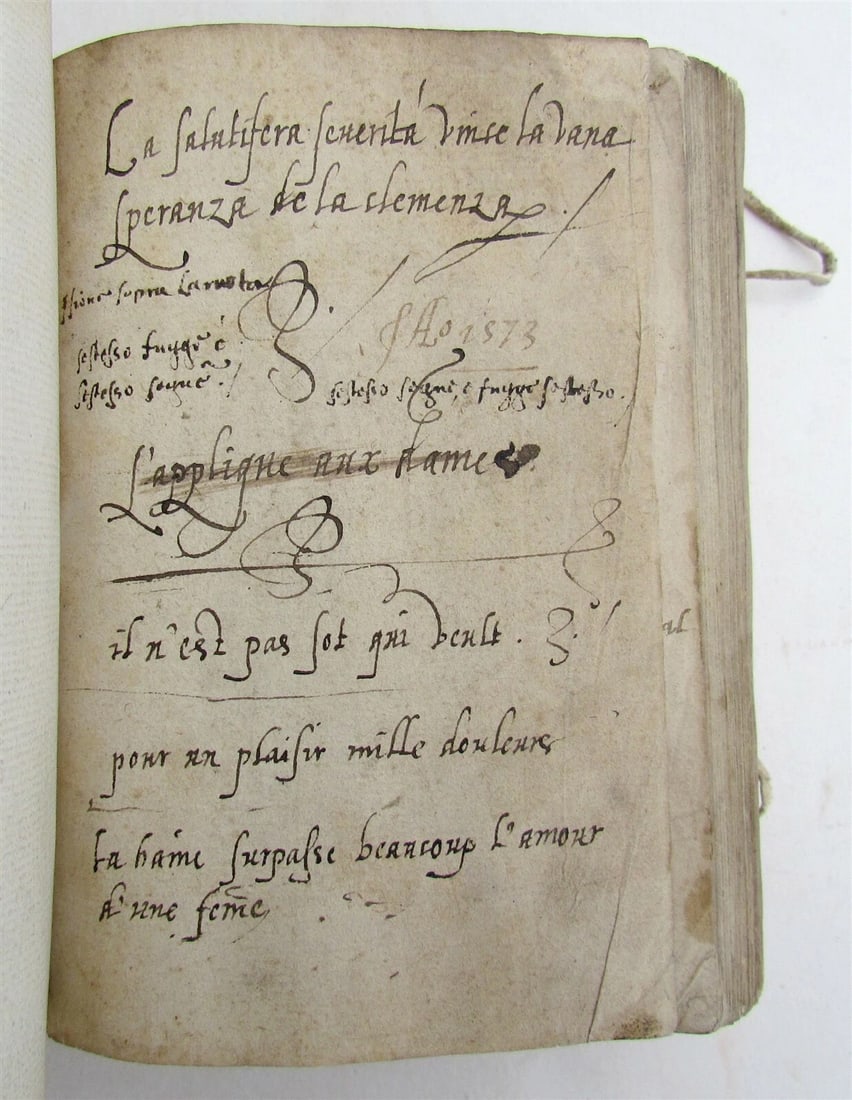 La salutifera seuerità vince la vana
speranza de la clemenza
sopra la ruota
sestesso fugge é
sestesso segue
1573
sestesso segue, e fugge sestesso.
L'applique aux dames
il n'est pas sot qui veult.
pour un plaisir mille douleurs
la haine surpasse beaucoup l'amour
d'une fem̄e
al